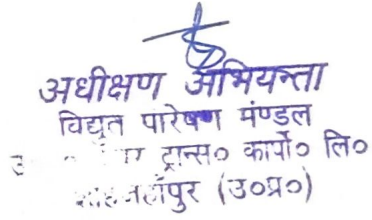 अधीक्षण अभियन्ता
विद्युत पारेषण मण्डल
ट्रान्स० कार्पो० लि०
शाहजहाँपुर (उ०प्र०)